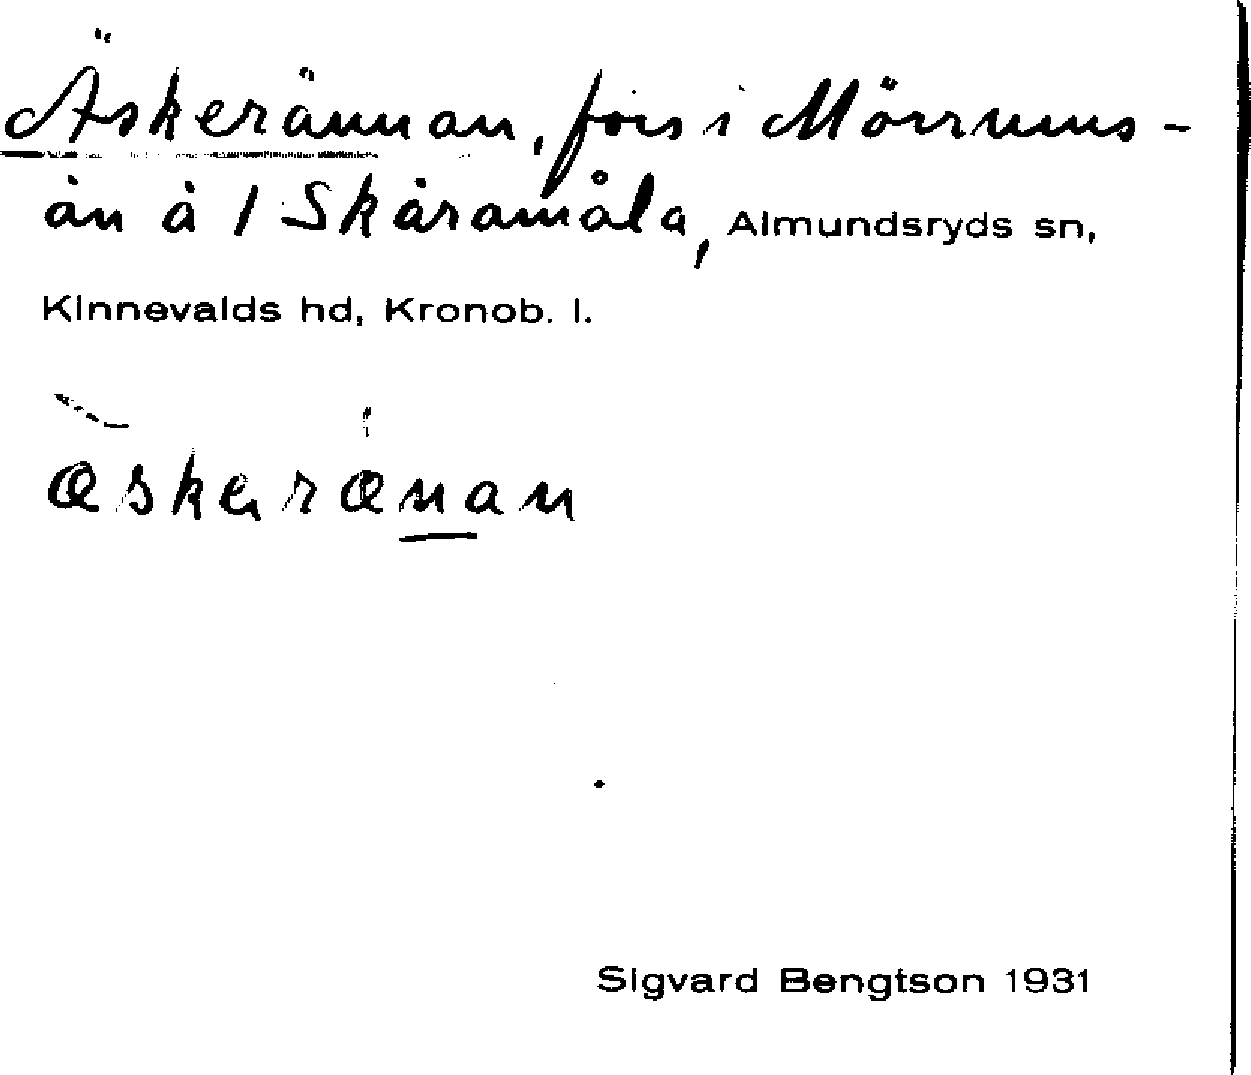 Äskerännan, fors i Mörrums-
ån å 1 Skåramåla, Almundsryds sn,
Kinnevalds hd, Kronob. l.
æskarænan
Sigvard Bengtson 1931